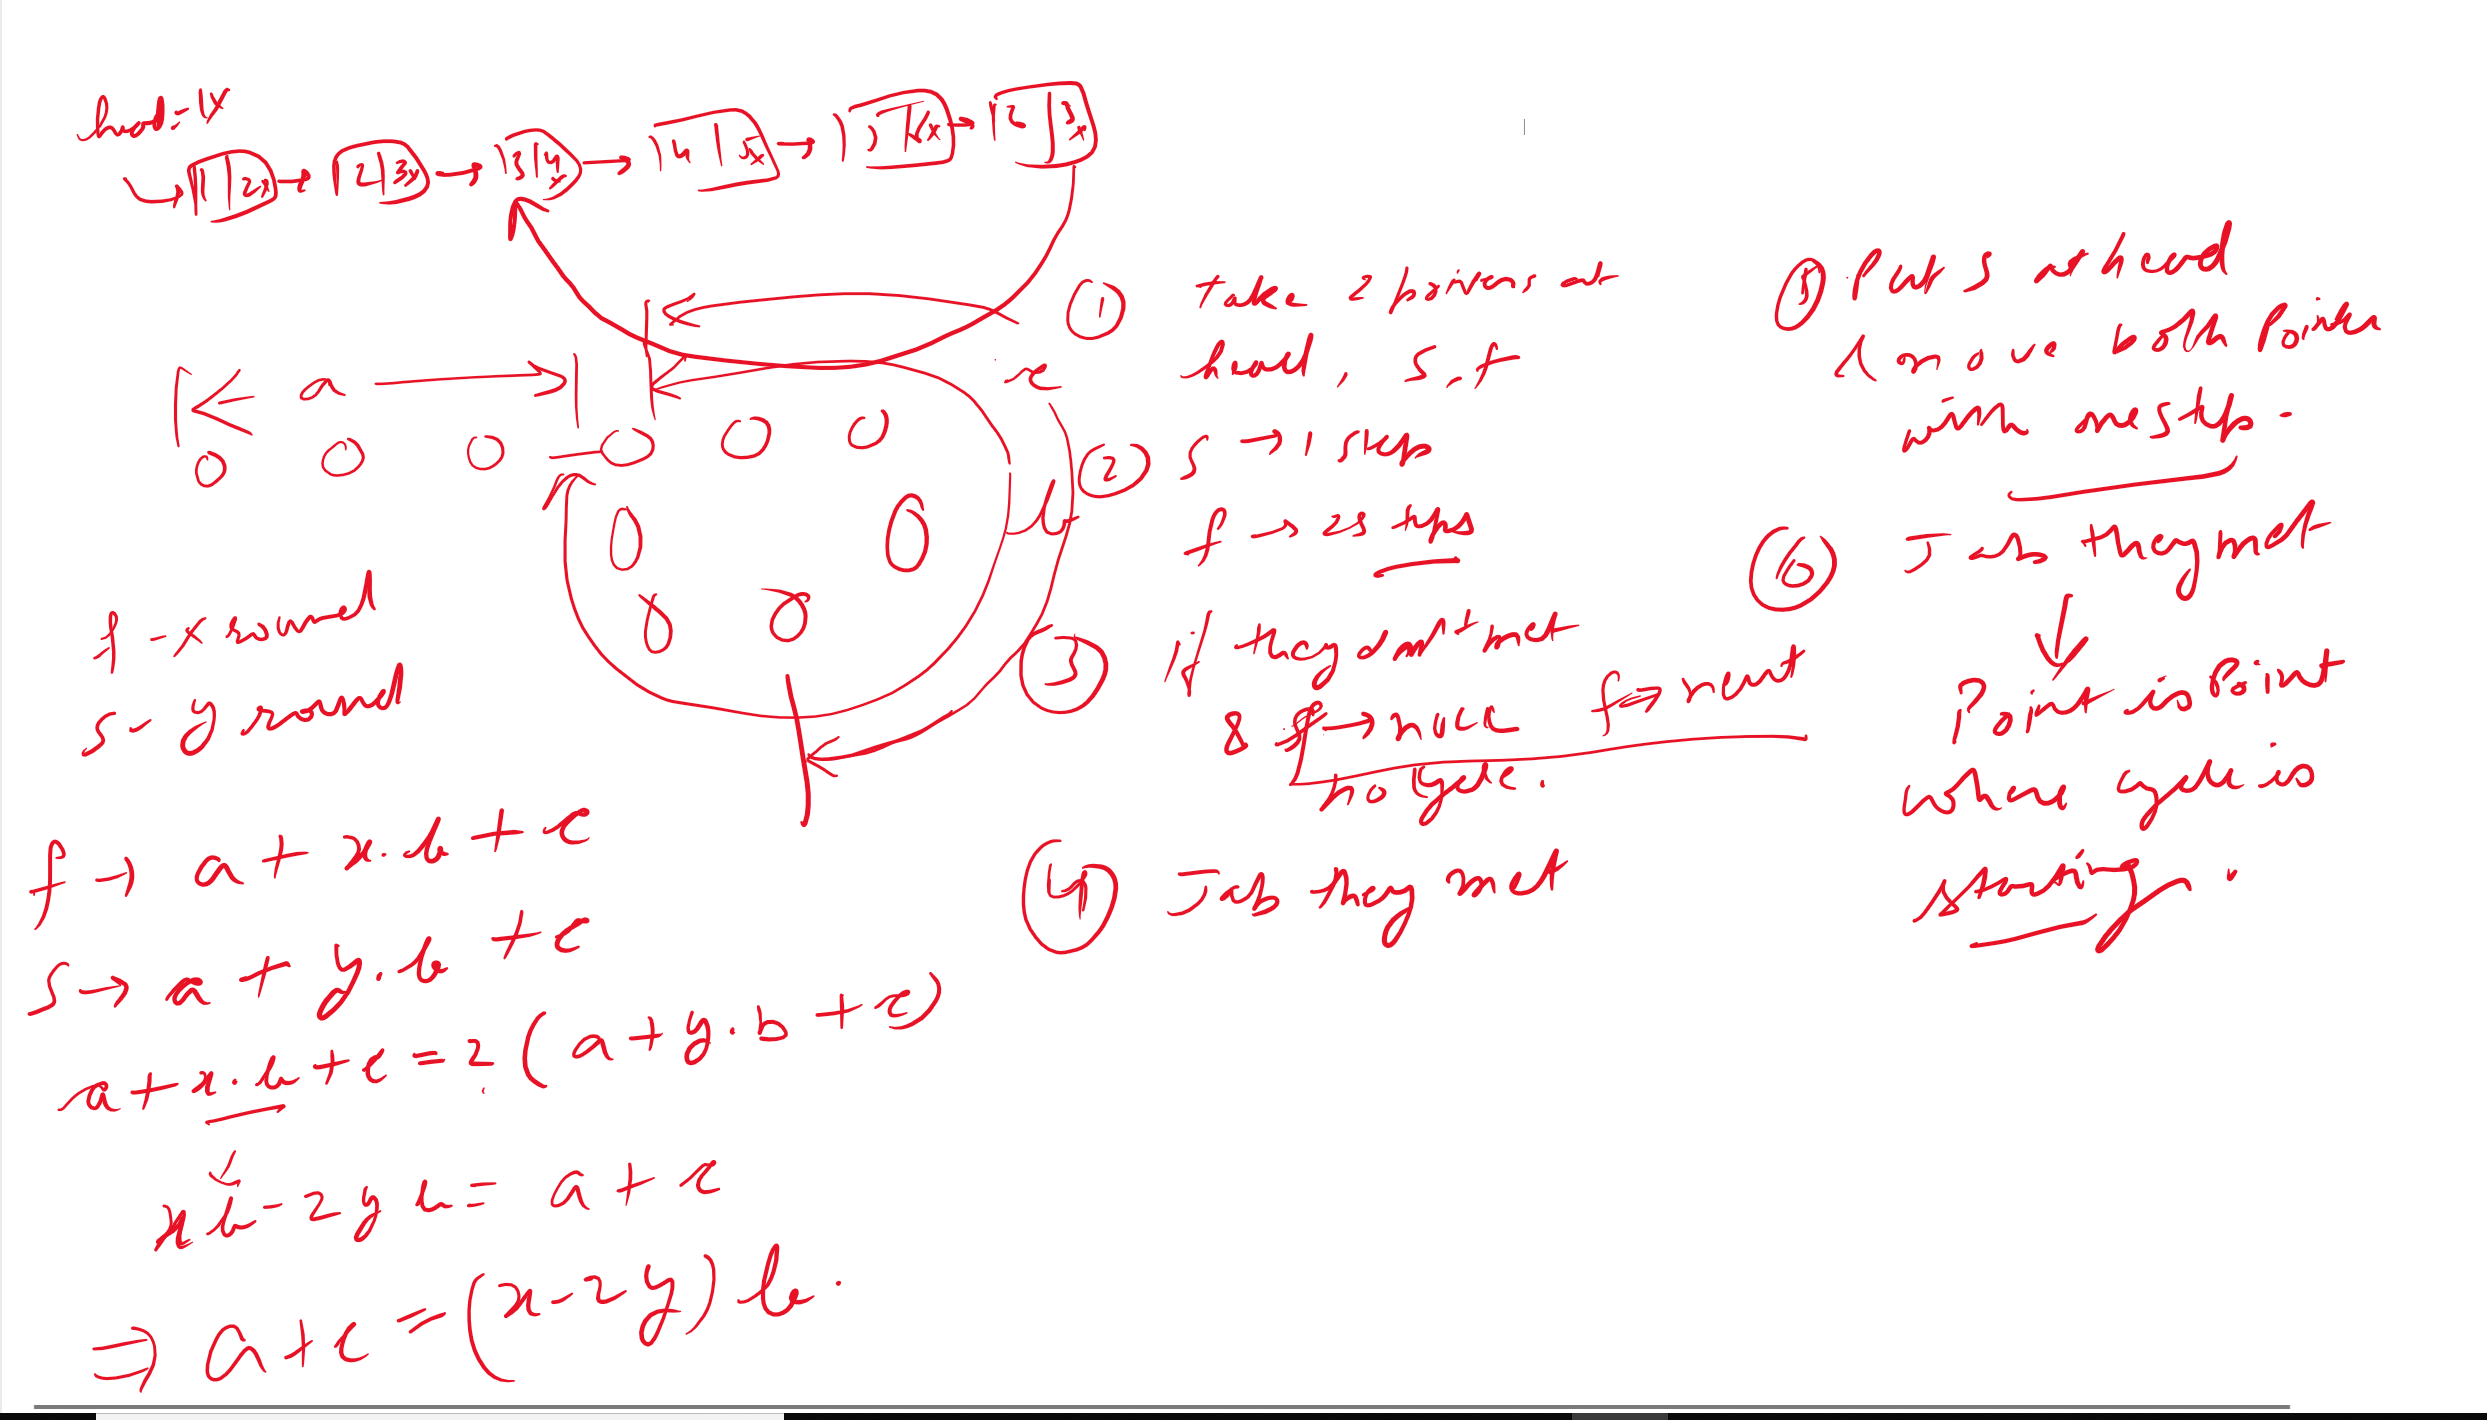 head = 1x
1 | 2x → 2 | 3x → 3 | 4x → 4 | 5x → 5 | 6x → 6 | 3x
a
c
b
f - x round
s - y round
f → a + x.b + c
s → a + y.b + c
a + x.b + c = 2 (a + y.b + c)
xb - 2yb = a + c
⇒ a + c = (x - 2y) b.
① take 2 pointers at
head, s, f
② s → 1 steps
f → 2 steps
③ if they don't met
& f → null f → next
no cycle.
④ Jab they met
⑤ Put s at head
& move both Pointer
with one step.
⑥ Jab they met
↓
Point is Point
where cycle is
starting.